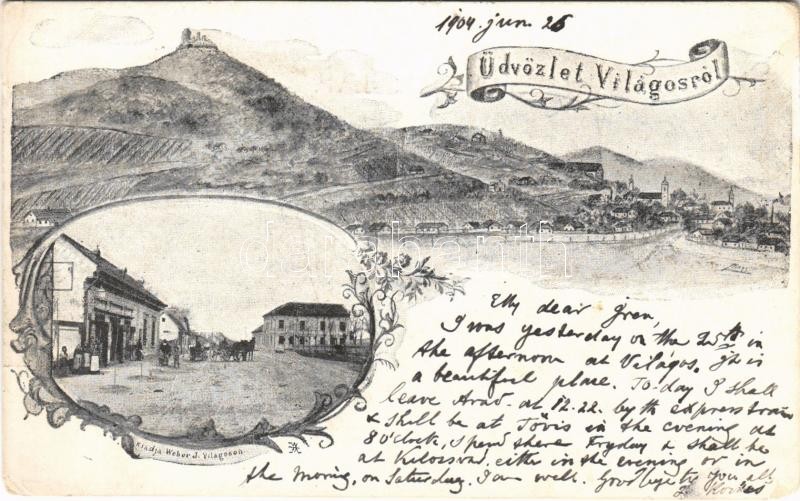 1904. jun. 26
Üdvözlet Világosról
My dear Iren,
I was yesterday on the 25th in
the afternoon at Világos. It is
a beautiful place. To-day I shall
leave Arad at 12.22. by th express train
& shall be at Tövis in the evening at
8 o'clock, spend there Fryday & shall be
at Kolozsvár, either in the evening or in
the morning, on Saturday. I am well. Good bye to you all
Kiadja Weber J. Világoson.
darabanth